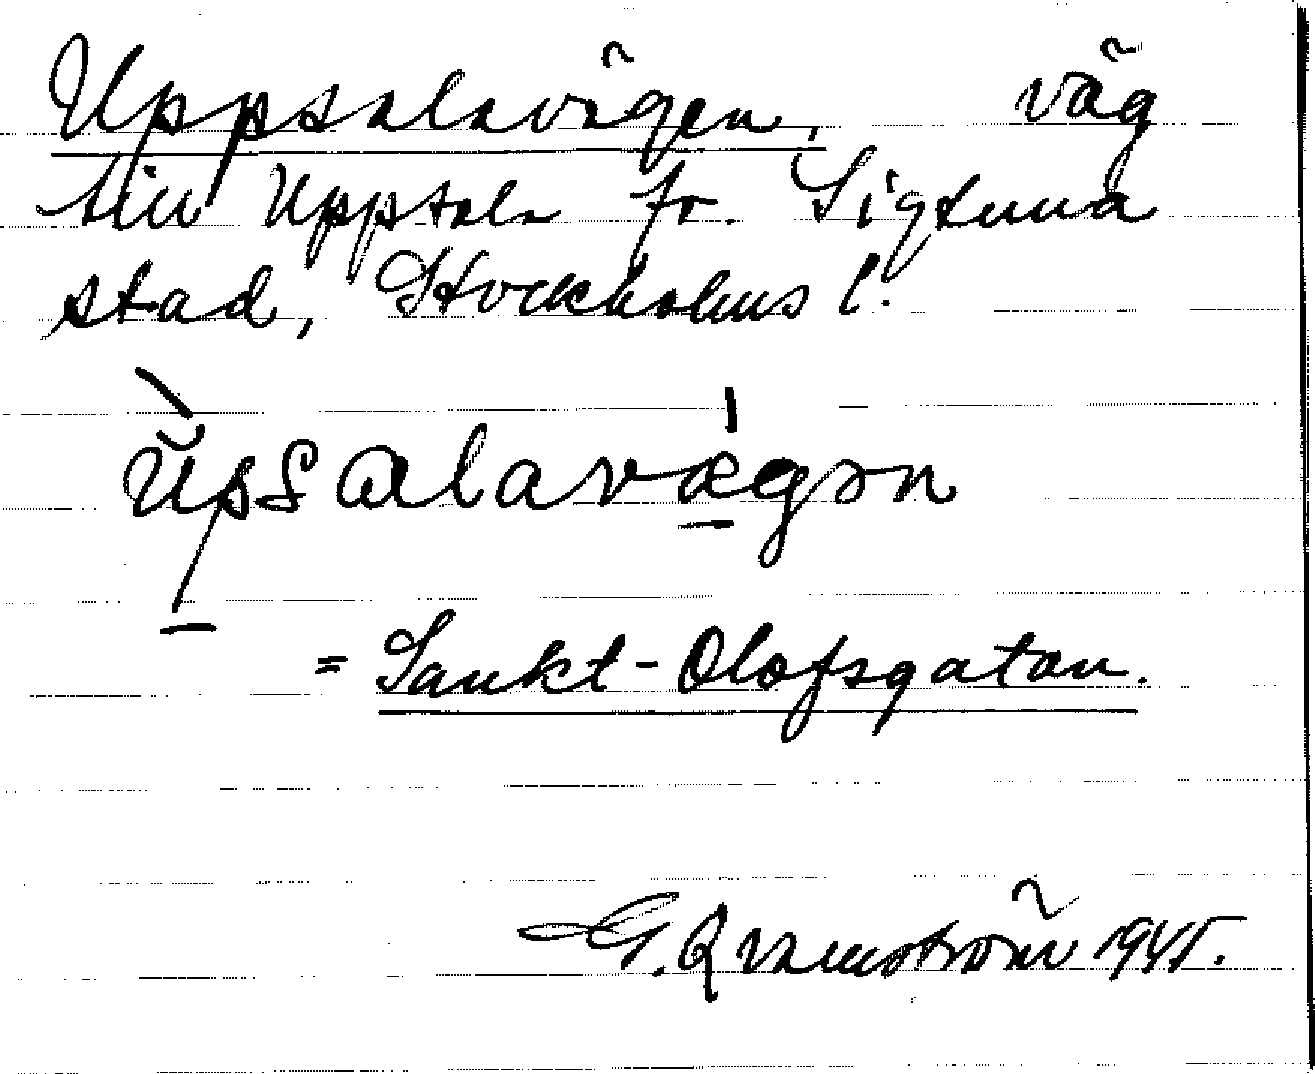 Uppsalavägen, väg
till Uppsala fr. Sigtuna
stad, Stockholms l.
= Sankt-Olofsgatan.
G. Qvarnström 1945.